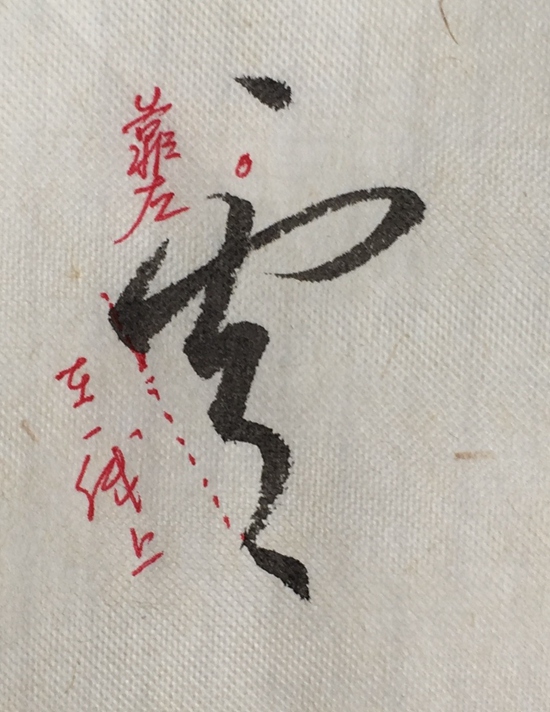 靠左
在一线上